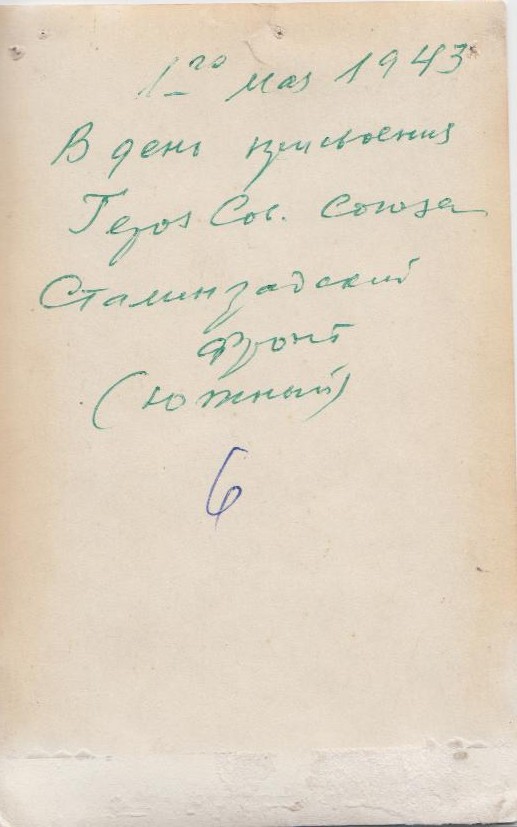 1го мая 1943
В день присвоения
Героя Сов. Союза
Сталинградский
фронт
(Южный)
6